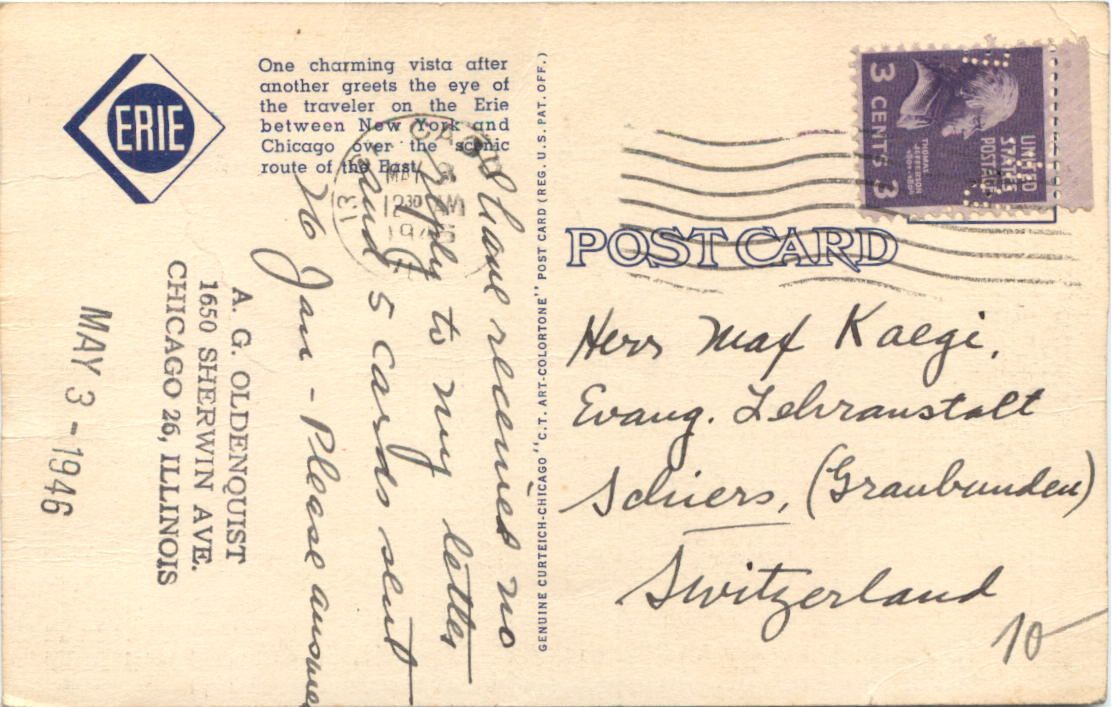 ERIE
One charming vista after
another greets the eye of
the traveler on the Erie
between New York and
Chicago over the scenic
route of the East.
I have received no
reply to my letter
and 5 cards sent
26 Jan - Please answer
A. G. OLDENQUIST
1650 SHERWIN AVE.
CHICAGO 26, ILLINOIS
MAY 3 - 1946
GENUINE CURTEICH-CHICAGO "C.T. ART-COLORTONE" POST CARD (REG. U.S. PAT. OFF.)
MAY
12 30 AM
POST CARD
3 CENTS 3
THOMAS
JEFFERSON
UNITED
STATES
POSTAGE
Herr Max Kaegi,
Evang. Lehranstalt
Schiers, (Graubunden)
Switzerland
10